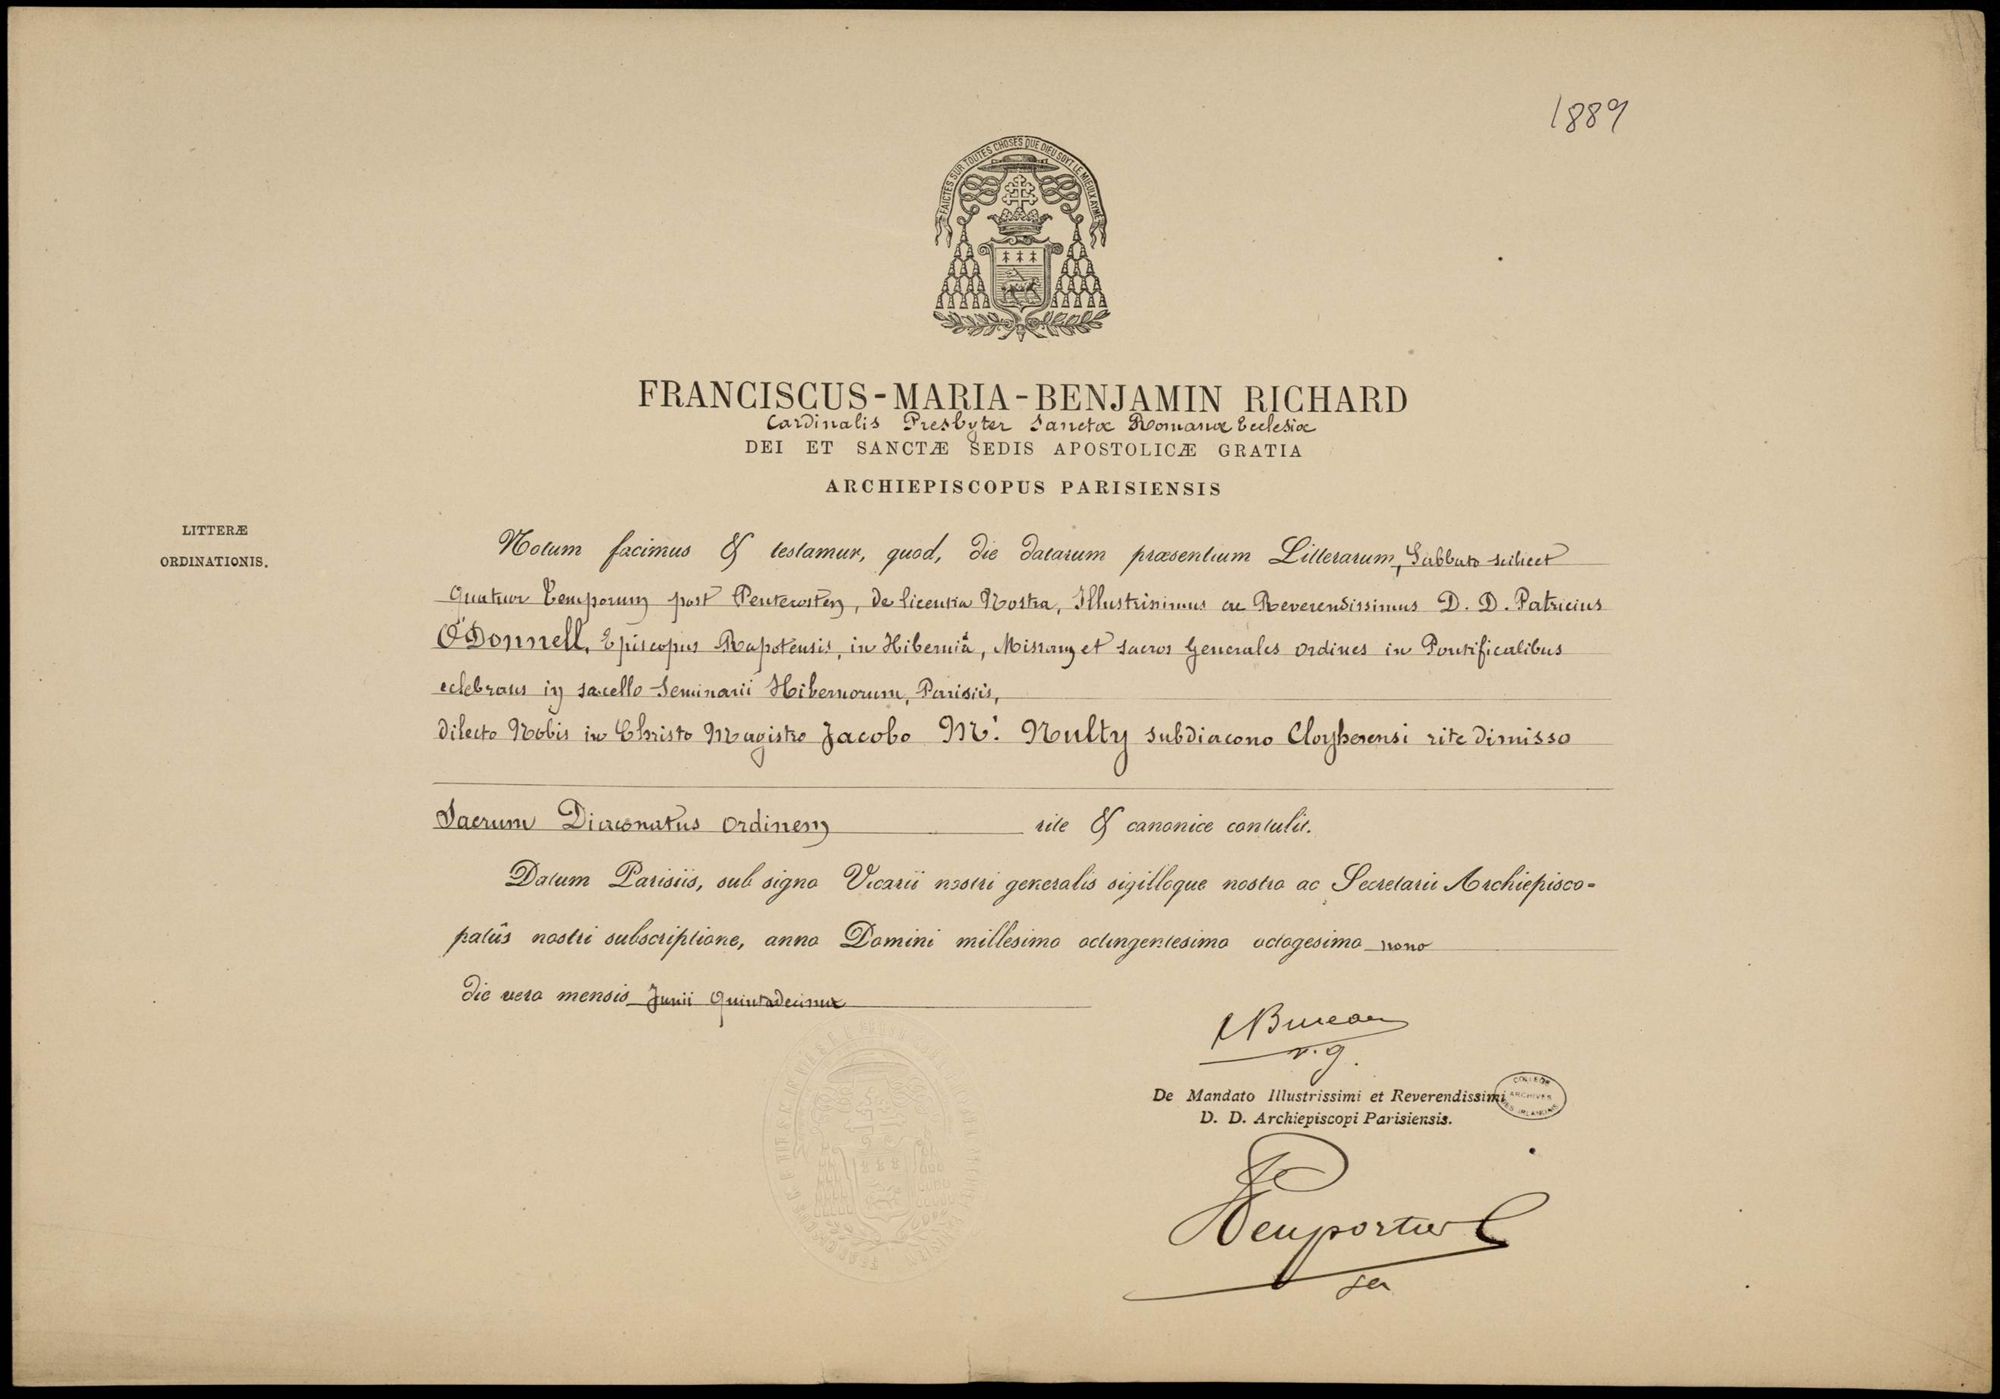 1889
FAICTES SUR TOUTES CHOSES QUE DIEU SOYT LE MIEULX AYMÉ
FRANCISCUS-MARIA-BENJAMIN RICHARD
Cardinalis Presbyter Sanctæ Romanæ Ecclesiæ
DEI ET SANCTÆ SEDIS APOSTOLICÆ GRATIA
ARCHIEPISCOPUS PARISIENSIS
LITTERÆ
ORDINATIONIS.
Notum facimus & testamur, quod, die datarum præsentium Litterarum, Sabbato scilicet
Quatuor Temporum post Pentecosten, de licentia Nostra, Illustrissimus ac Reverendissimus D. D. Patricius
O'Donnell, Episcopus Rapotensis, in Hiberniâ, Missam et sacros Generales ordines in Pontificalibus
celebrans in sacello Seminarii Hibernorum, Parisiis,
dilecto Nobis in Christo Magistro Jacobo Mc. Nulty subdiacono Clogherensi rite dimisso
Sacrum Diaconatus Ordinem rite & canonice contulit.
Datum Parisiis, sub signo Vicarii nostri generalis sigilloque nostro ac Secretarii Archiepisco-
patûs nostri subscriptione, anno Domini millesimo octingentesimo octogesimo nono
die vero mensis Junii Quintadecima
Bureau
v. g.
De Mandato Illustrissimi et Reverendissimi
D. D. Archiepiscopi Parisiensis.
COLLEGE
ARCHIVES
DES IRLANDAIS